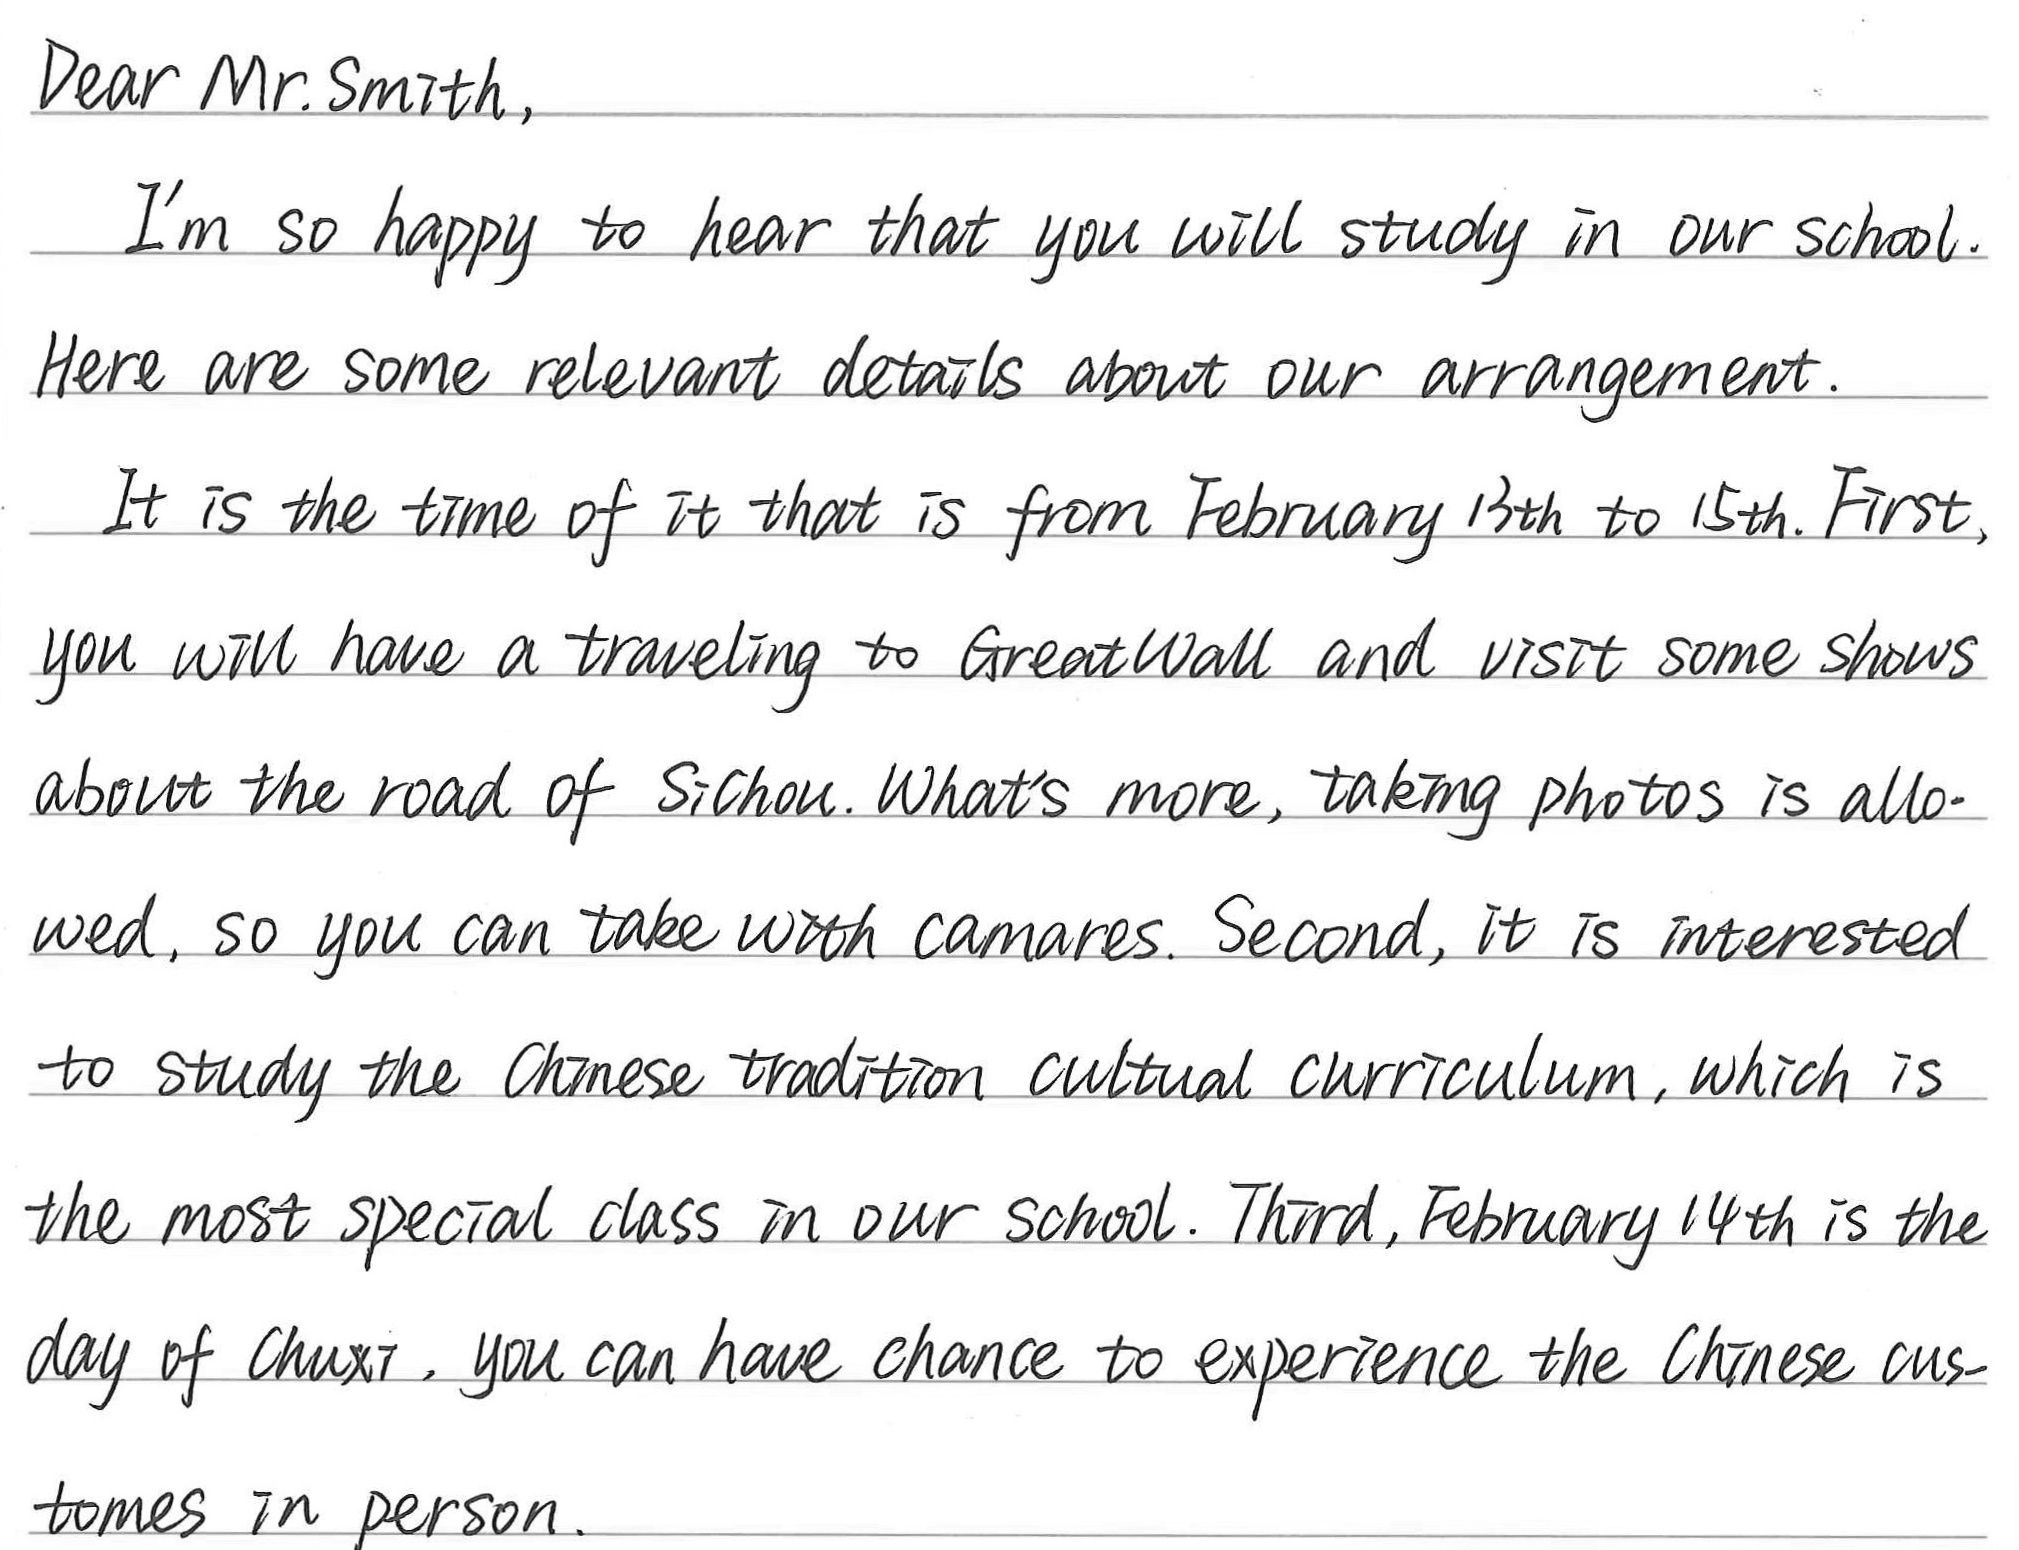 Dear Mr. Smith,
I'm so happy to hear that you will study in our school.
Here are some relevant details about our arrangement.
It is the time of it that is from February 13th to 15th. First,
you will have a traveling to GreatWall and visit some shows
about the road of SiChou. What's more, taking photos is allo-
wed, so you can take with camares. Second, it is interested
to study the Chinese tradition cultual curriculum, which is
the most special class in our school. Third, February 14th is the
day of Chuxi, you can have chance to experience the Chinese cus-
tomes in person.